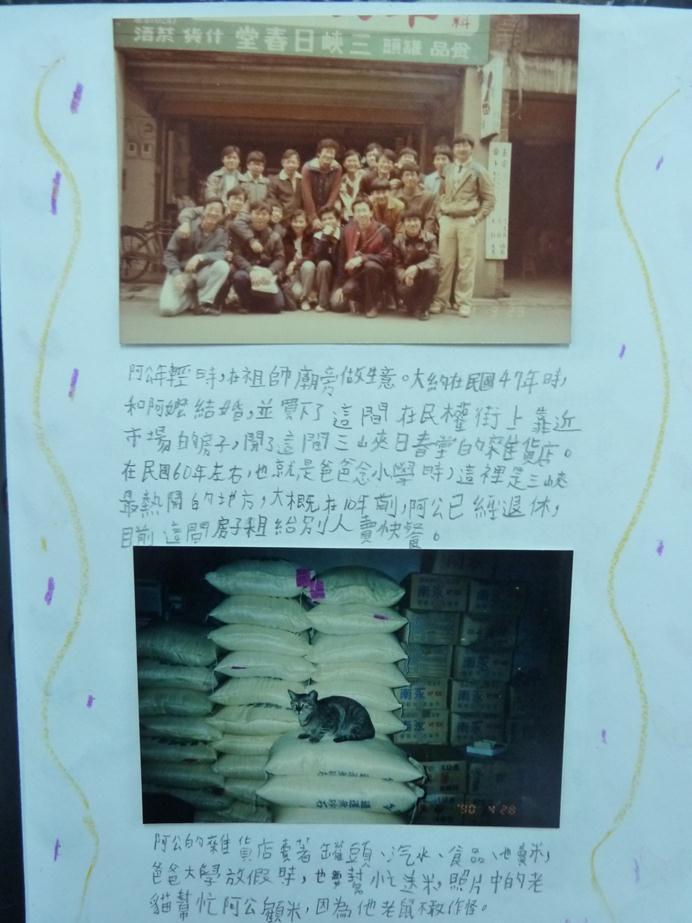 料
食品 罐頭 三峽日春堂 什貨 菸酒
阿公年輕時,在祖師廟旁做生意。大約在民國47年時,
和阿嬤結婚,並買下了這間在民權街上靠近
市場的房子,開了這間三峽日春堂的雜貨店。
在民國60年左右,也就是爸爸念小學時,這裡是三峽
最熱鬧的地方,大概在10年前,阿公已經退休,
目前這間房子租給別人賣快餐。
'90 4 28
阿公的雜貨店賣著罐頭、汽水、食品、也賣米,
爸爸大學放假時,也要幫忙送米,照片中的老
貓幫忙阿公顧米,因為他老鼠不敢作怪。